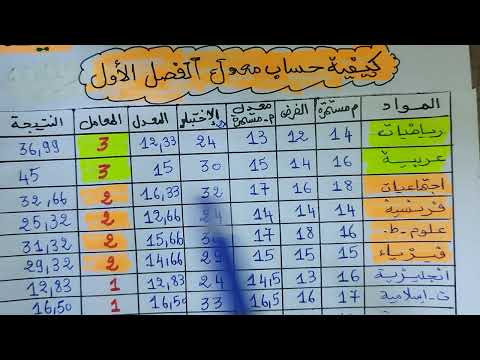 كيفية حساب معدل الفصل الأول
المواد م.مستمرة الفرض معدل م.مستمرة الاختبار المعدل المعامل النتيجة
رياضيات 14 12 13 24 12,33 3 36,99
عربية 16 14 15 30 15 3 45
اجتماعيات 18 16 17 32 16,33 2 32,66
فرنسية 14 14 14 24 12,66 2 25,32
علوم.ط. 16 18 17 15,66 2 31,32
فيزياء 15 15 15 29 14,66 2 29,32
انجليزية 16 13 14,5 24 12,83 1 12,83
ت.اسلامية 17 16 16,5 33 16,50 1 16,50